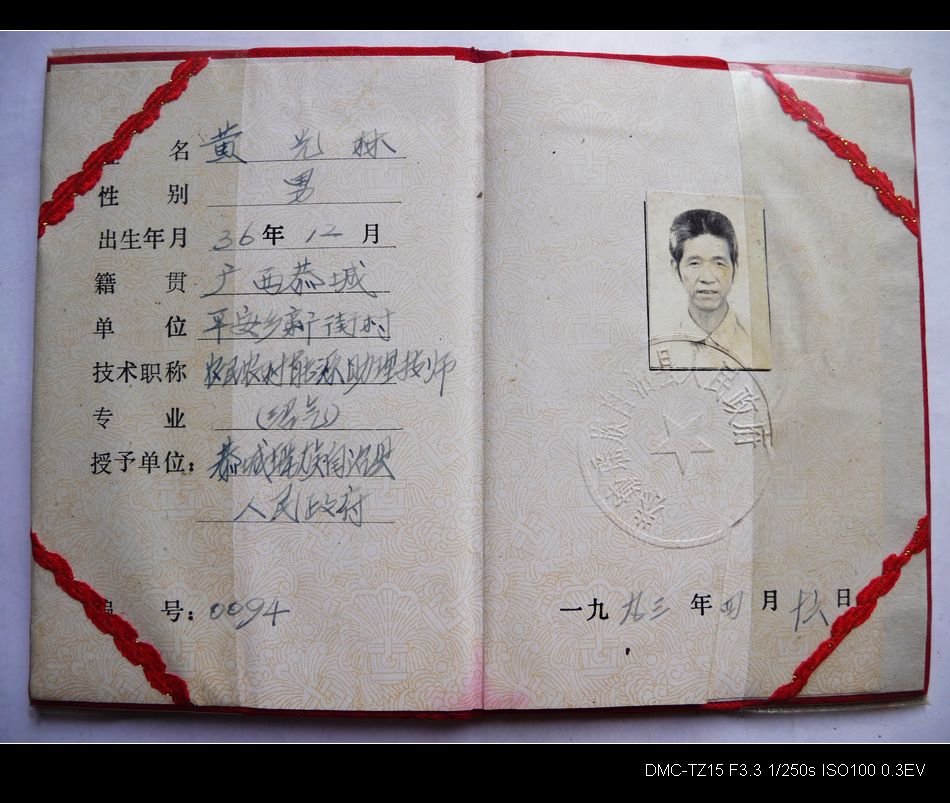 姓 名 黄光林
性 别 男
出生年月 36年12月
籍 贯 广西恭城
单 位 平安乡新街村
技术职称 农民农村能源助理技师
专 业 (沼气)
授予单位: 恭城瑶族自治县
人民政府
编 号: 0094
恭城瑶族自治县人民政府
一九九三年四月十六日
DMC-TZ15 F3.3 1/250s ISO100 0.3EV